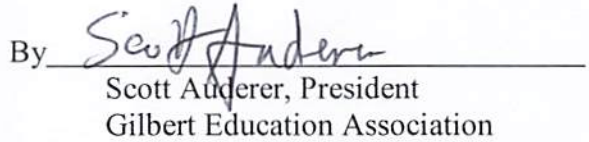 By Scott Auderer
Scott Auderer, President
Gilbert Education Association